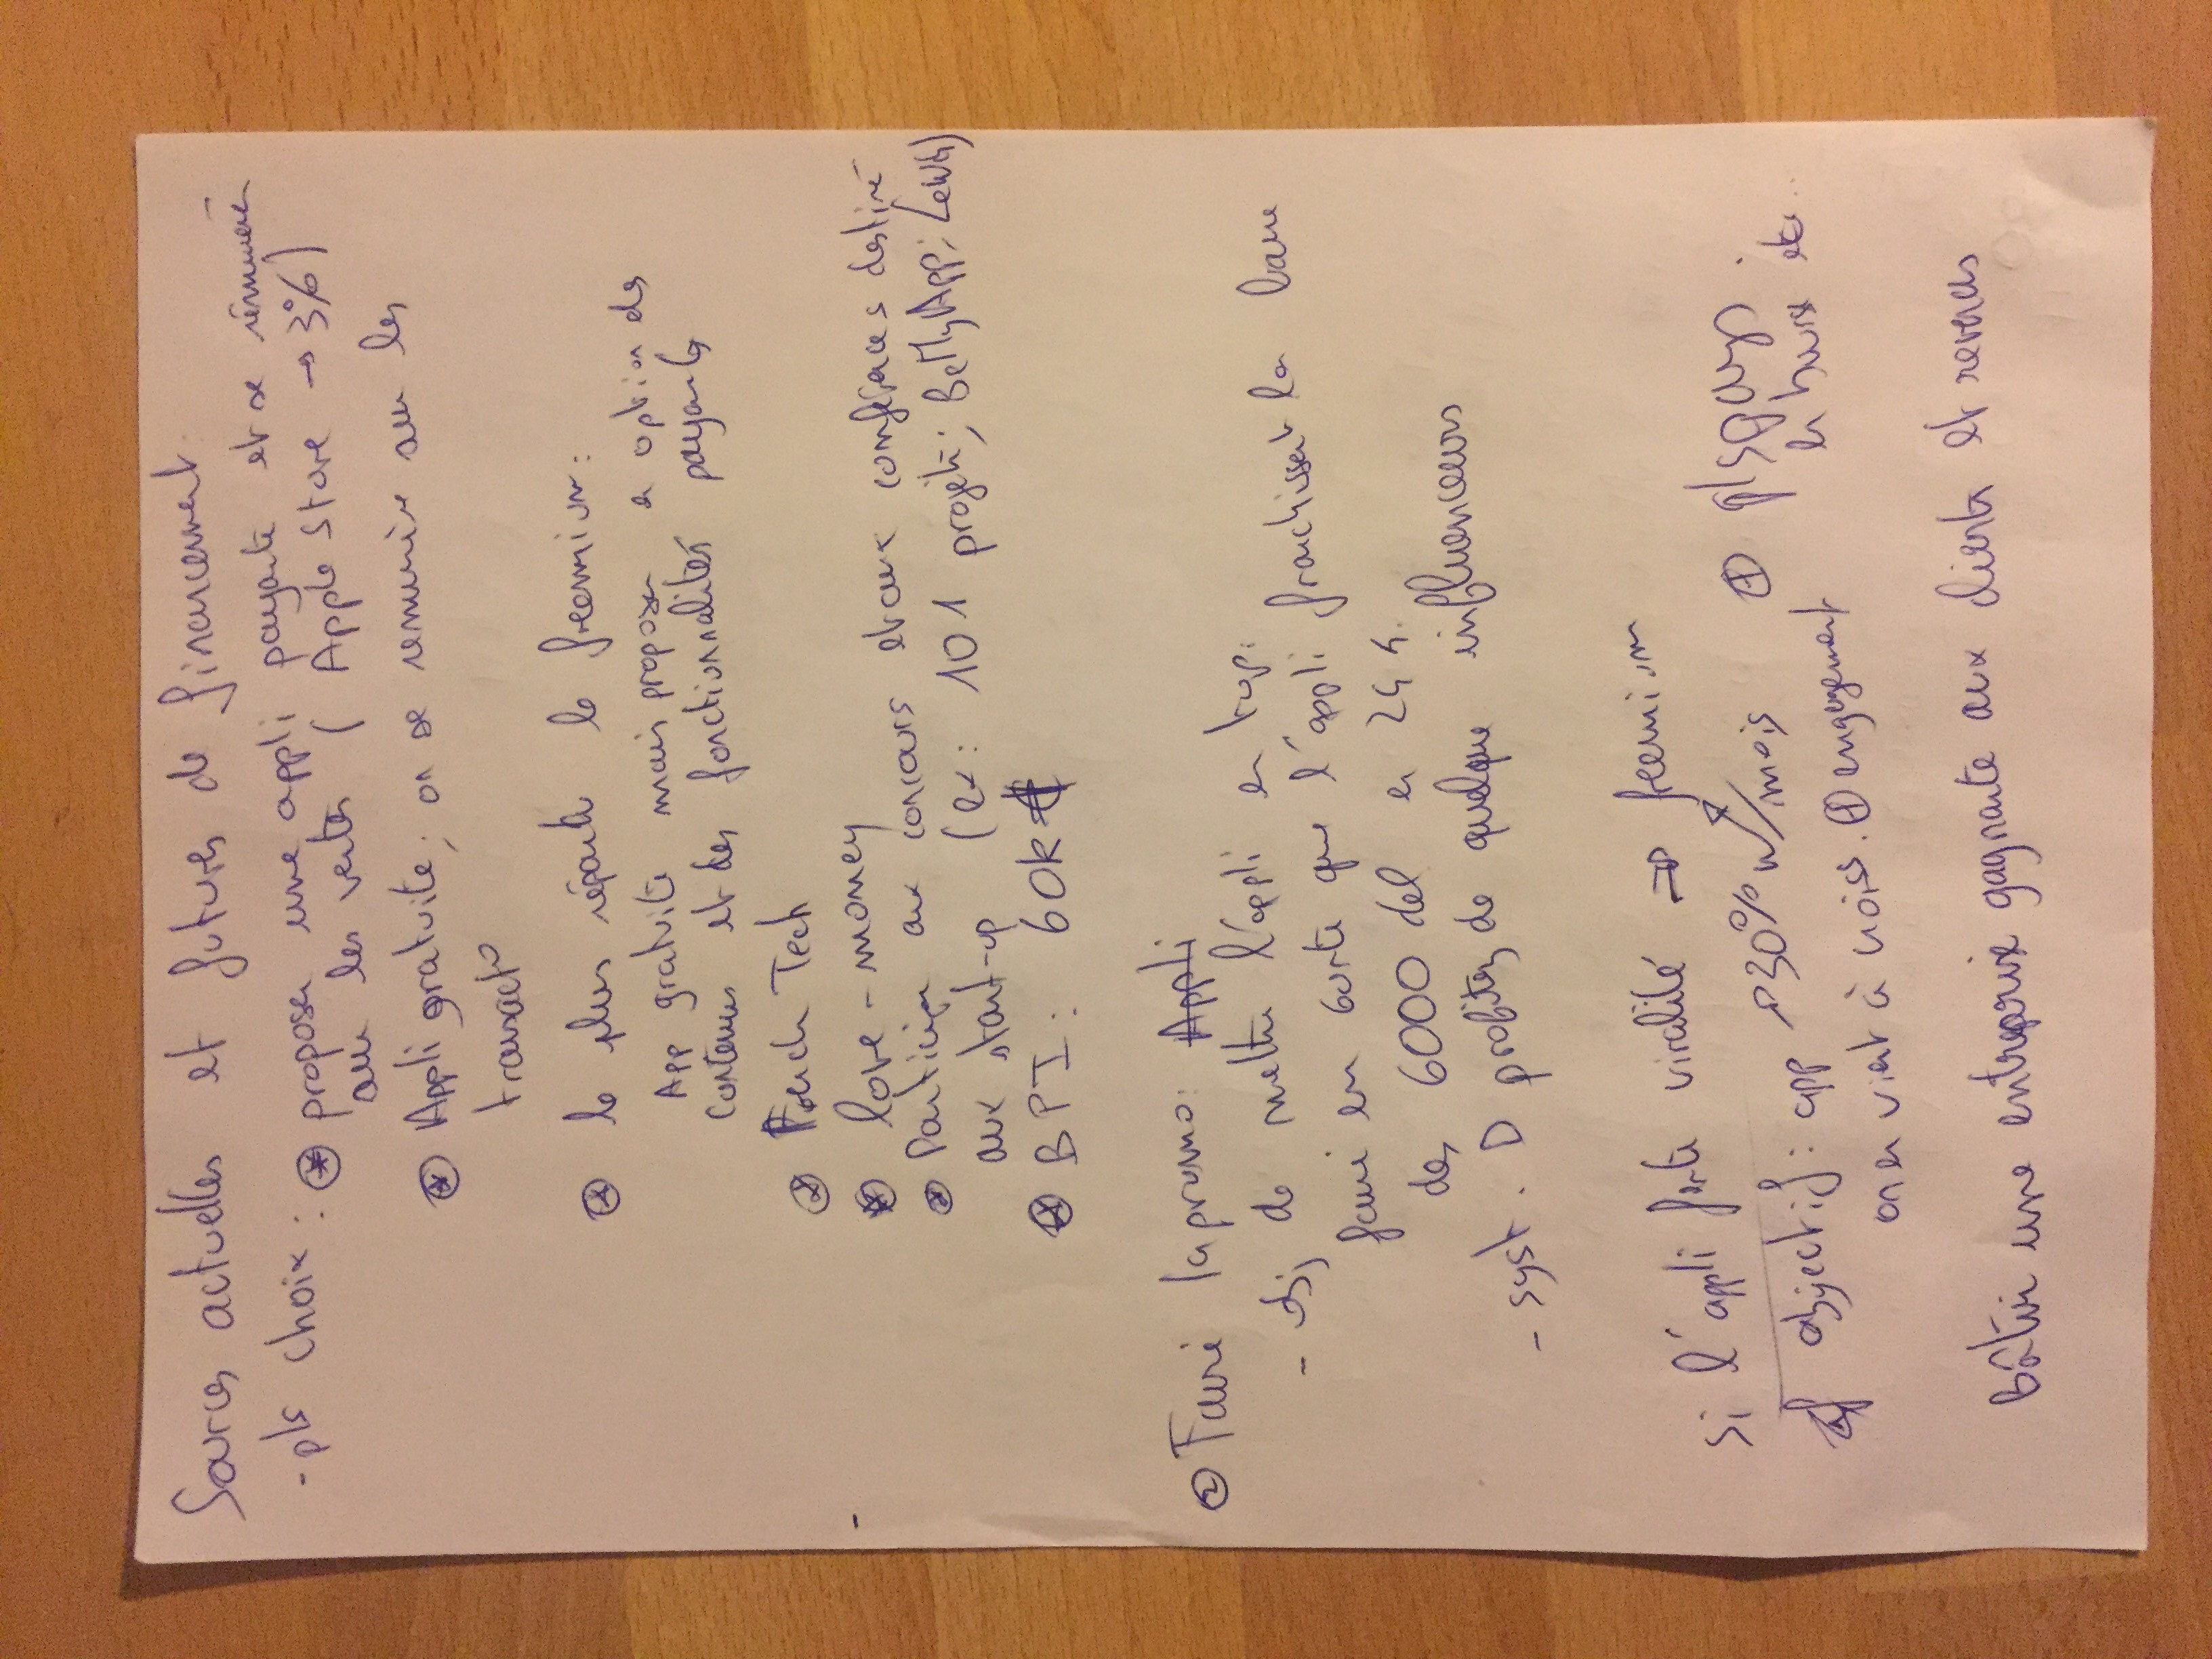 Sources actuelles et futures de financement
- pls choix : * proposer une appli payante et se rémunérer
sur les ventes ( Apple Store → 3%)
* Appli gratuite, on se rémunère sur les
transact°
* le plus répandu le freemium :
App gratuite mais proposer en option des
contenus et des fonctionnalités payantes
* French Tech
-
* love-money
* Participer aux concours et aux conférences destiné
aux start-up (ex : 101 projets; BeMyApp;
* BPI : 60k€
② Faire la promo : Appli
- obj de mettre l'appli en top.
faire en sorte que l'appli franchissent la barre
des 6000 tel en 24h.
- syst. D profitez de quelque influenceurs
Si l'appli forte viralité ⇒ freemium
objectif : app → 30% /mois ⊕ pls pays.
on en vient à croiss. ⊕ engagement en bourse etc..
Bâtir une entreprise gagnante aux clients et revenus